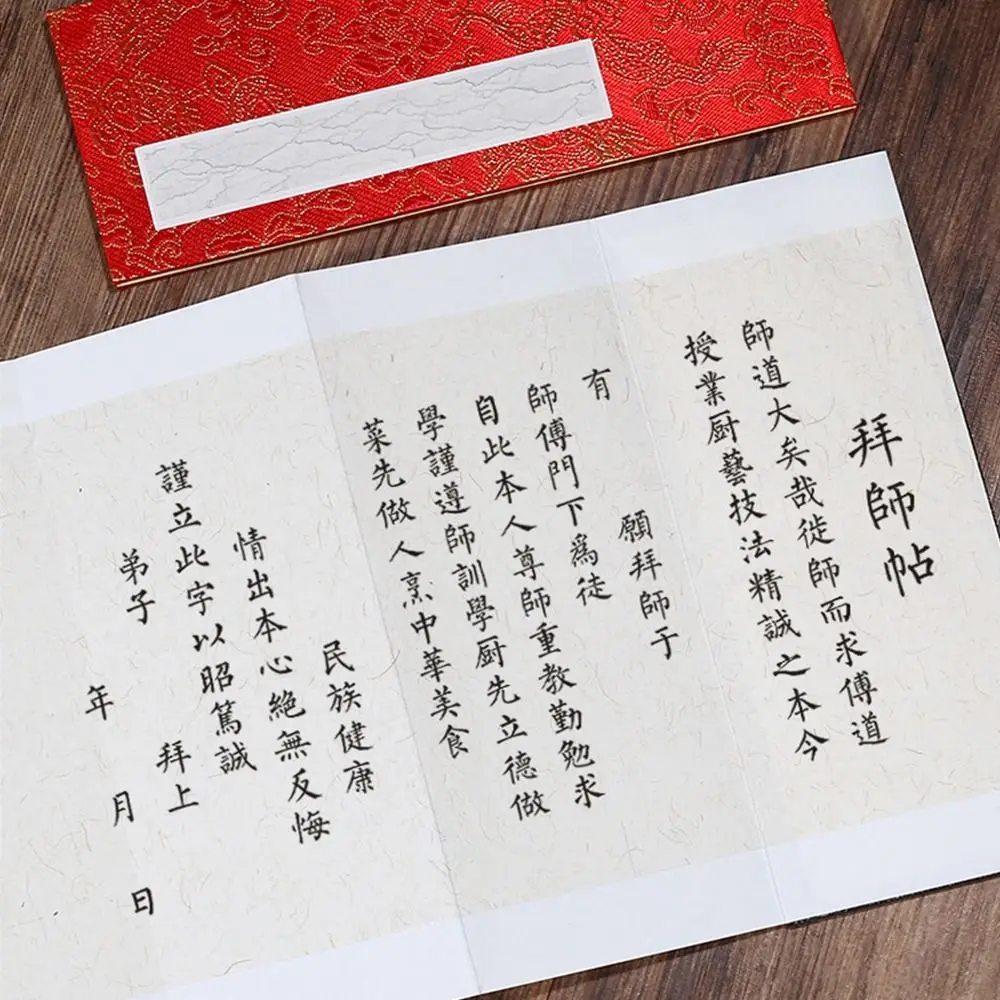 拜師帖
師道大矣哉徙師而求傅道
授業厨藝技法精誠之本今
有 願拜師于
師傅門下爲徒
自此本人尊師重教勤勉求
學謹遵師訓學厨先立德做
菜先做人烹中華美食
民族健康
情出本心絶無反悔
謹立此字以昭篤誠
弟子 拜上
年 月 日